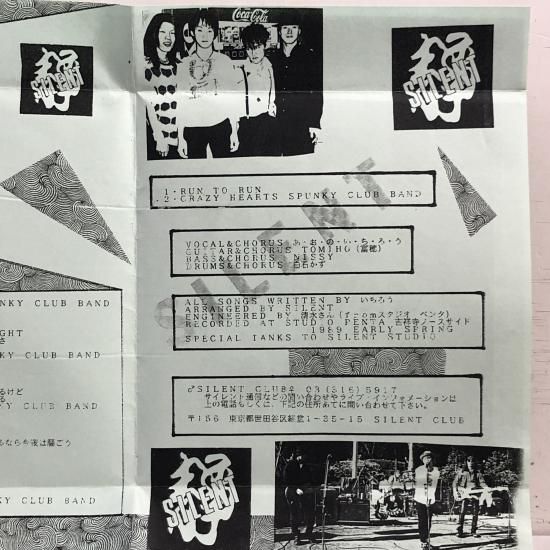 Coca-Cola
静
SILENT
静
SILENT
1・RUN TO RUN
2・CRAZY HEARTS SPUNKY CLUB BAND
SILENT
VOCAL&CHORUS あ・お・の・い・ち・ろ・う
GUITAR&CHORUS TOMIHO (富穂)
BASS&CHORUS NISSY
DRUMS&CHORUS 白石かず
ALL SONGS WRITTEN BY いちろう
ARRANGED BY SILENT
ENGINEERED BY 清水さん (fromスタジオ ペンタ)
RECORDED AT STUDIO PENTA 吉祥寺ノースサイド
1989 EARLY SPRING
SPECIAL TANKS TO SILENT STUDIO
♂SILENT CLUB♀ 03 (316) 5917
サイレント通信などの問い合わせやライブ・インフォメーションは
上の電話もしくは、下記の住所あてに問い合わせて下さい。
〒156 東京都世田谷区経堂1-35-15 SILENT CLUB
NKY CLUB BAND
GHT
さ
KY CLUB BAND
るけど
る
KY CLUB BAND
るなら今夜は騒ごう
NKY CLUB BAND
静
SILENT